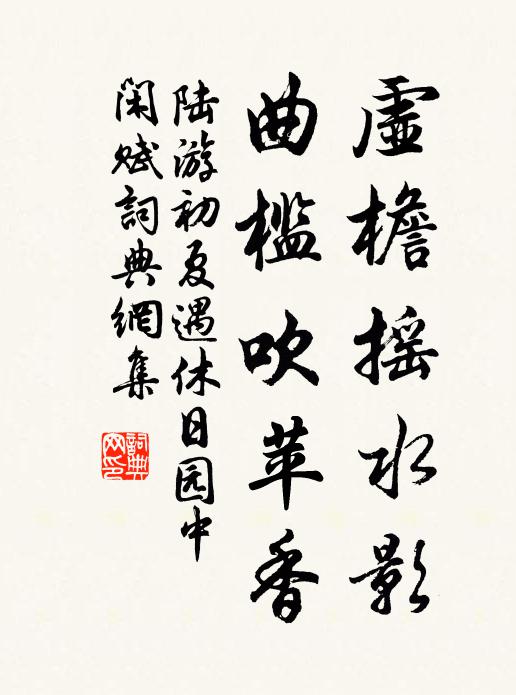 虛檐摇水影
曲槛吹苹香
陆游初夏遇休日园中
闲赋詞典網集
詞典网印